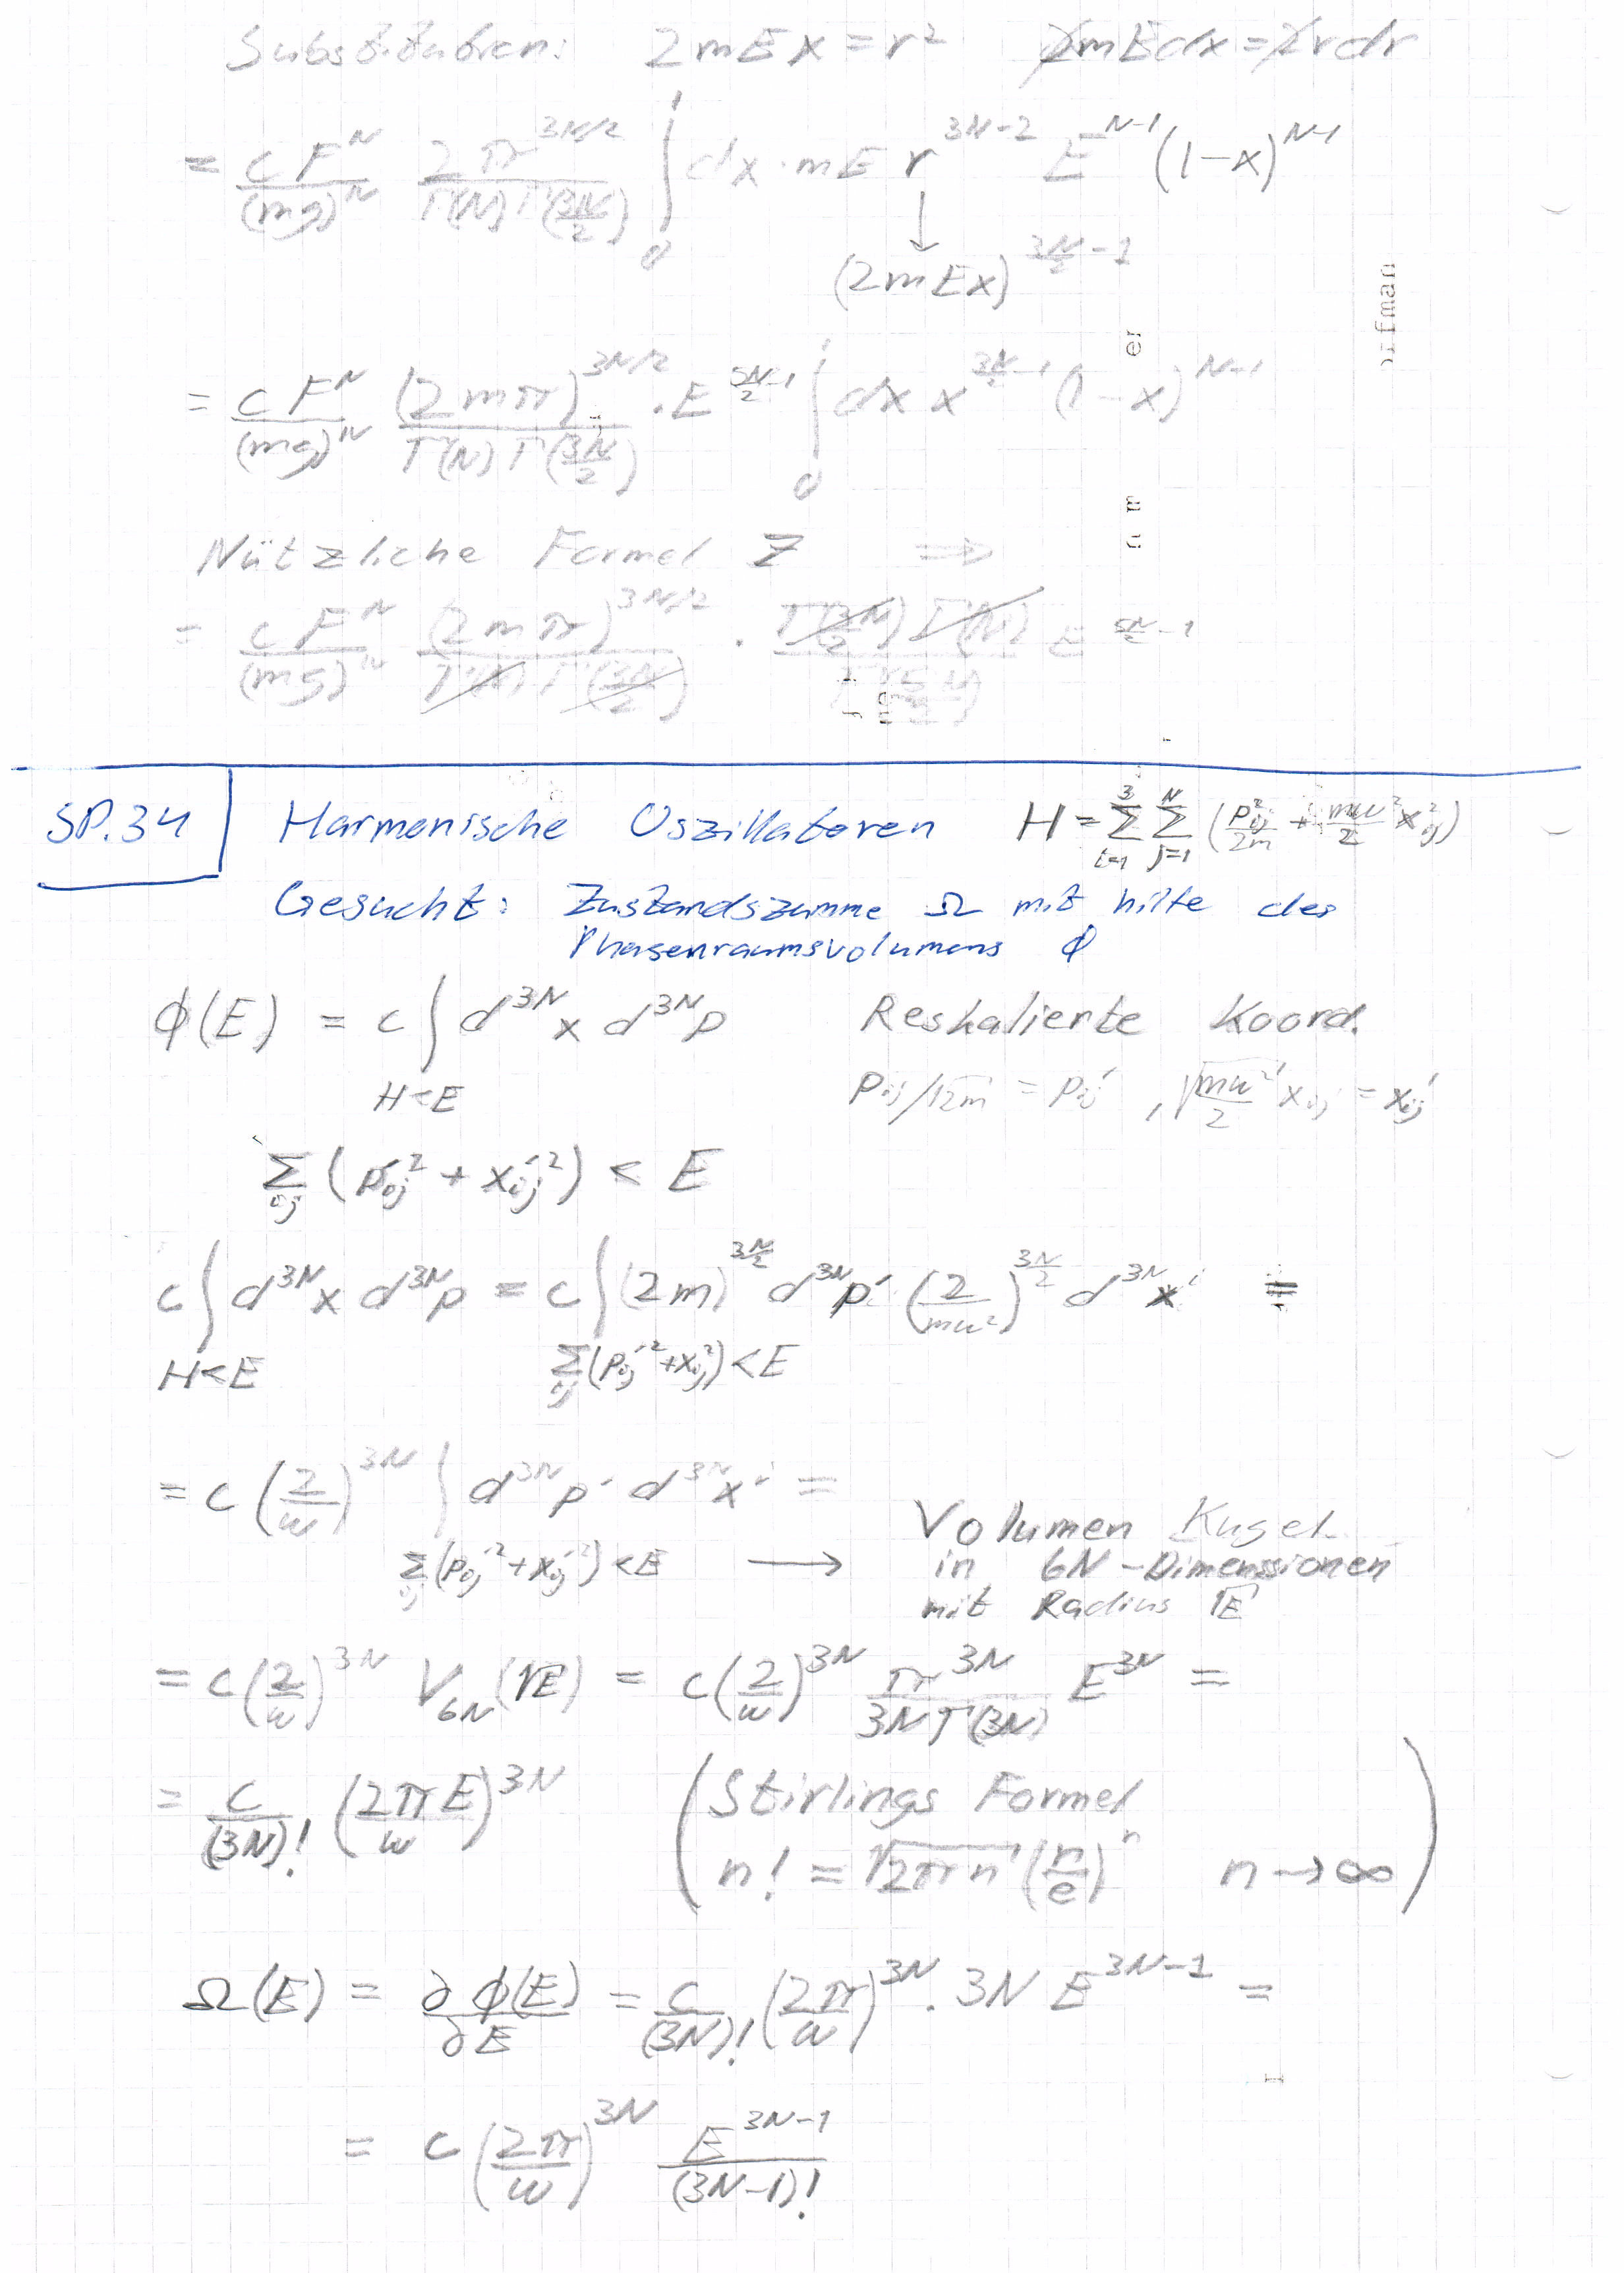 Substitutieren: 2mEx = r² 2mEdx = 2rdr
= cF^N/(mg)^N 2π^(3N/2)/(Γ(N)Γ(3N/2)) ∫₀¹ dx · mE r^(3N-2) E^(N-1) (1-x)^(N-1)
↓
(2mEx)^(3N/2 -1)
= cF^N/(mg)^N (2mπ)^(3N/2)/(Γ(N)Γ(3N/2)) · E^(5N/2 -1) ∫₀¹ dx x^(3N/2 -1) (1-x)^(N-1)
Nützliche Formel 7 ⇒
= cF^N/(mg)^N (2mπ)^(3N/2)/(Γ(N)Γ(3N/2)) · Γ(3/2 N)Γ(N)/Γ(5N/2) E^(5N/2 -1)
SP.34 Harmonische Oszillatoren H = Σ_{i=1}^3 Σ_{j=1}^N (p_ij²/2m + mω²/2 x_ij²)
Gesucht: Zustandszumme Ω mit hilfe des
Phasenraumsvolumens ϕ
ϕ(E) = c ∫_{H<E} d^{3N}x d^{3N}p Reskalierte Koord.
p_ij/√2m = p_ij' , √(mω²/2) x_ij = x_ij'
Σ_ij (p_ij'² + x_ij'²) < E
c ∫_{H<E} d^{3N}x d^{3N}p = c ∫_{Σ_ij (p_ij'²+x_ij'²)<E} (2m)^(3N/2) d^{3N}p' (2/mω²)^(3N/2) d^{3N}x' =
= c (2/ω)^{3N} ∫_{Σ_ij (p_ij'²+x_ij'²)<E} d^{3N}p' d^{3N}x' =
→ Volumen Kugel
in 6N-Dimenssionen
mit Radius √E
= c (2/ω)^{3N} V_{6N}(√E) = c (2/ω)^{3N} π^{3N}/(3NΓ(3N)) E^{3N} =
= c/(3N)! (2πE/ω)^{3N} (Stirlings Formel
n! = √2πn (n/e)^n n → ∞)
Ω(E) = ∂ϕ(E)/∂E = c/(3N)! (2π/ω)^{3N} · 3N E^{3N-1} =
= c (2π/ω)^{3N} E^{3N-1}/(3N-1)!